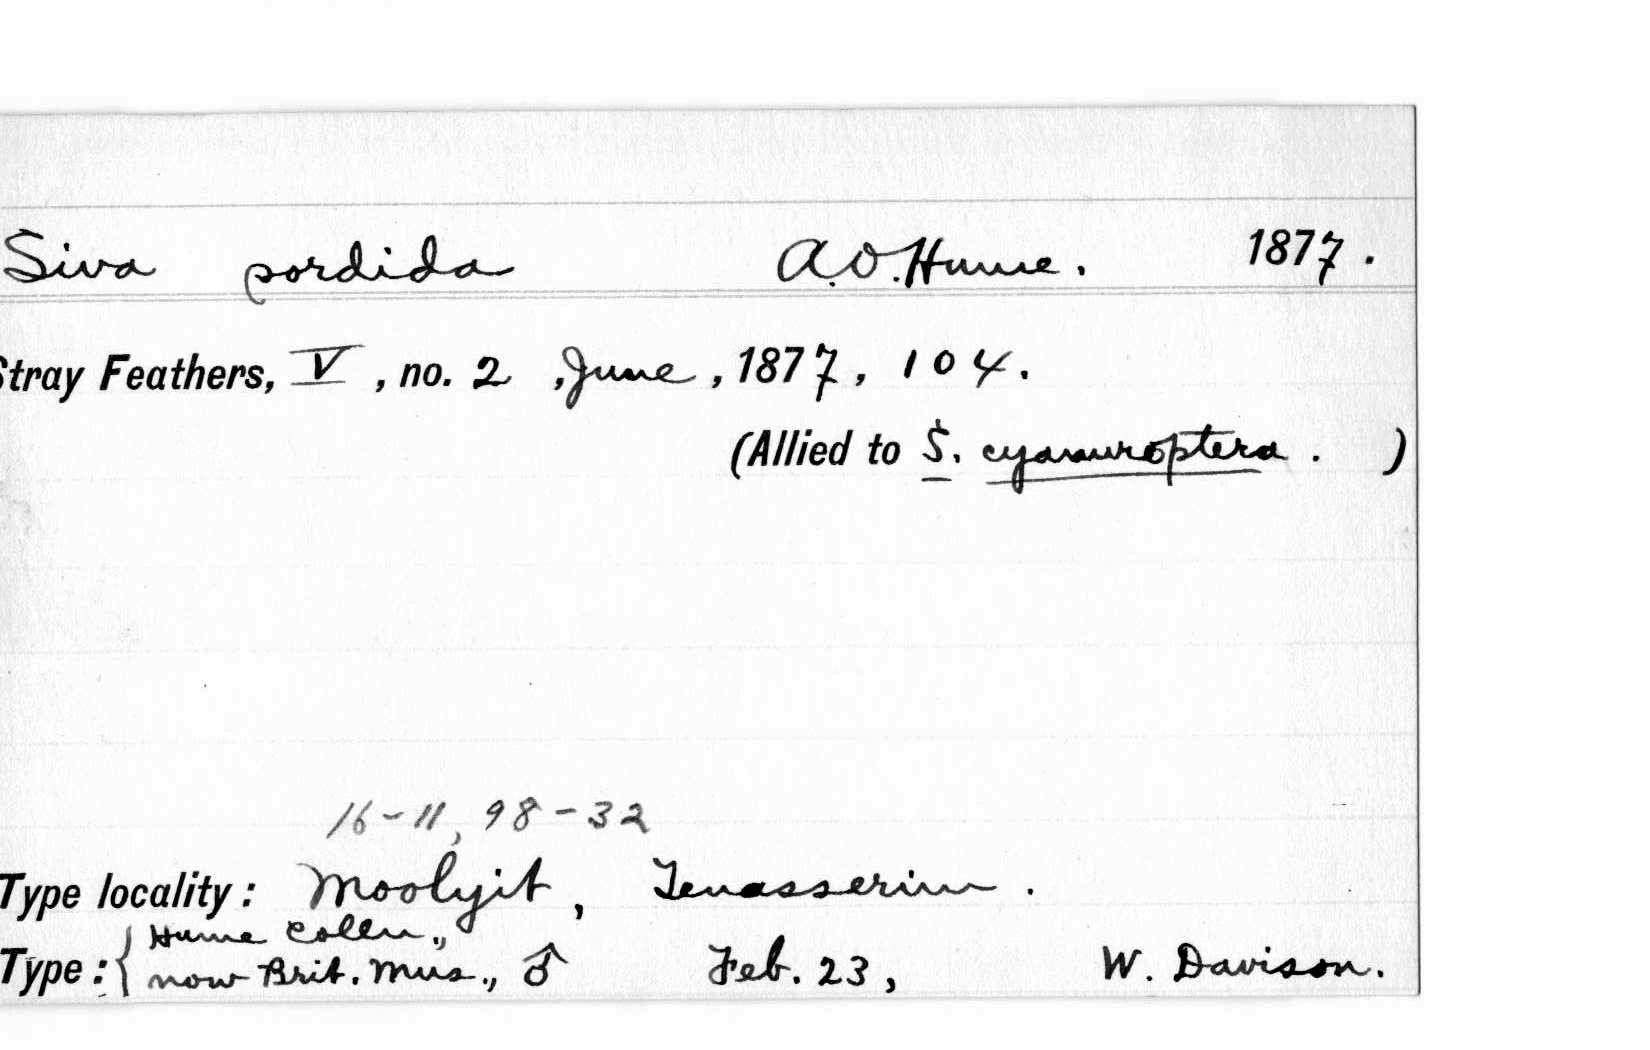 Siva sordida A.O. Hume. 1877.
Stray Feathers, V, no. 2, June, 1877, 104.
(Allied to S. cyanuroptera. )
16-11, 98-32
Type locality: Moolyit, Tenasserim.
Hume Colln.,
Type: { now Brit. Mus., ♂ Feb. 23, W. Davison.